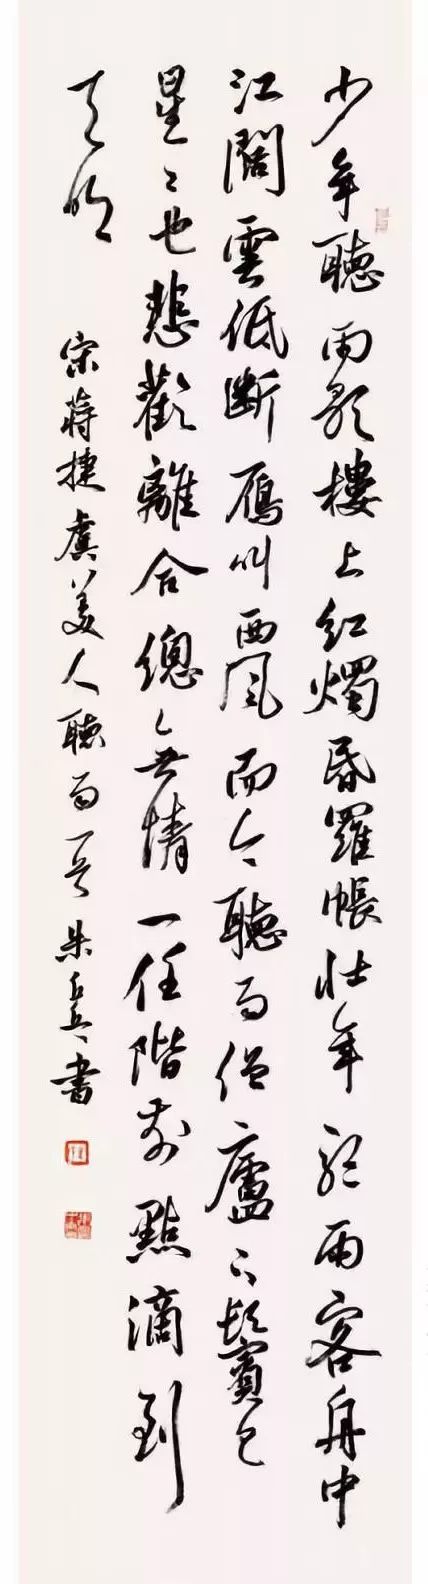 少年聽雨歌樓上紅燭昏羅帳壯年聽雨客舟中
江闊雲低斷雁叫西風而今聽雨僧廬下鬢已
星星也悲歡離合總無情一任階前點滴到
天明
宋蔣捷虞美人聽雨一首 朱 書